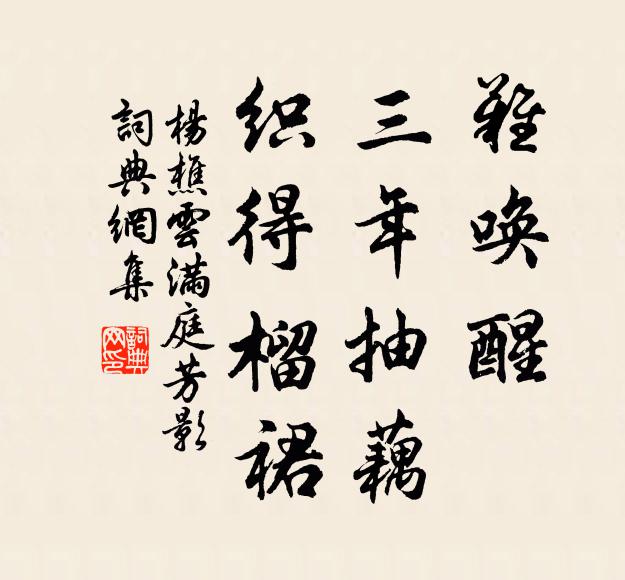 難唤醒
三年抽藕
织得榴裙
楊樵雲滿庭芳影
詞典網集
詞典網印